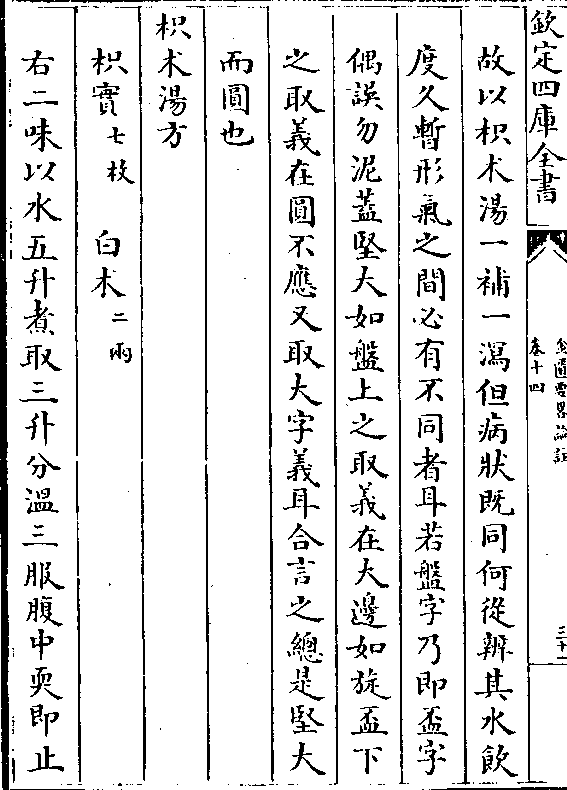 欽定四庫全書
金匱要略論註
卷十四
三十一
故以枳朮湯一補一瀉但病狀既同何從辨其水飲
度久暫形氣之間必有不同者耳若盤字乃即盃字
偶誤勿泥蓋堅大如盤上之取義在大邊如旋盃下
之取義在圓不應又取大字義耳合言之總是堅大
而圓也
枳朮湯方
枳實七枚　白朮二兩
右二味以水五升煮取三升分溫三服腹中耎即止